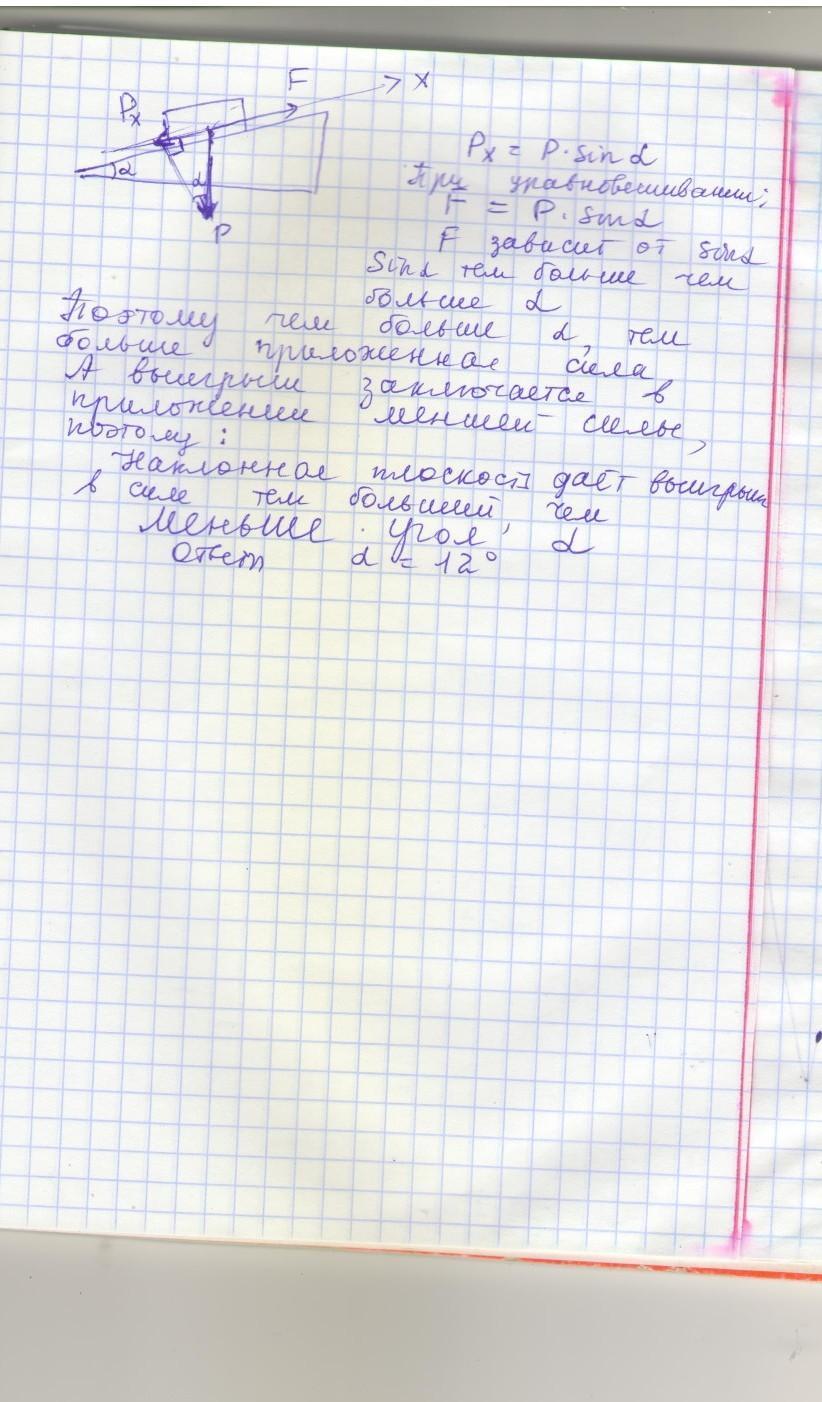 F
X
Px
α
α
P
Px = P·sinα
При уравновешивании:
F = P·sinα
F зависит от sinα
Sinα тем больше чем
больше α
Поэтому чем больше α, тем
больше приложенная сила
А выигрыш заключается в
приложении меншей силы,
поэтому:
Наклонная плоскость даёт выигрыш
в силе тем больший, чем
меньше угол α
Ответ α = 12°